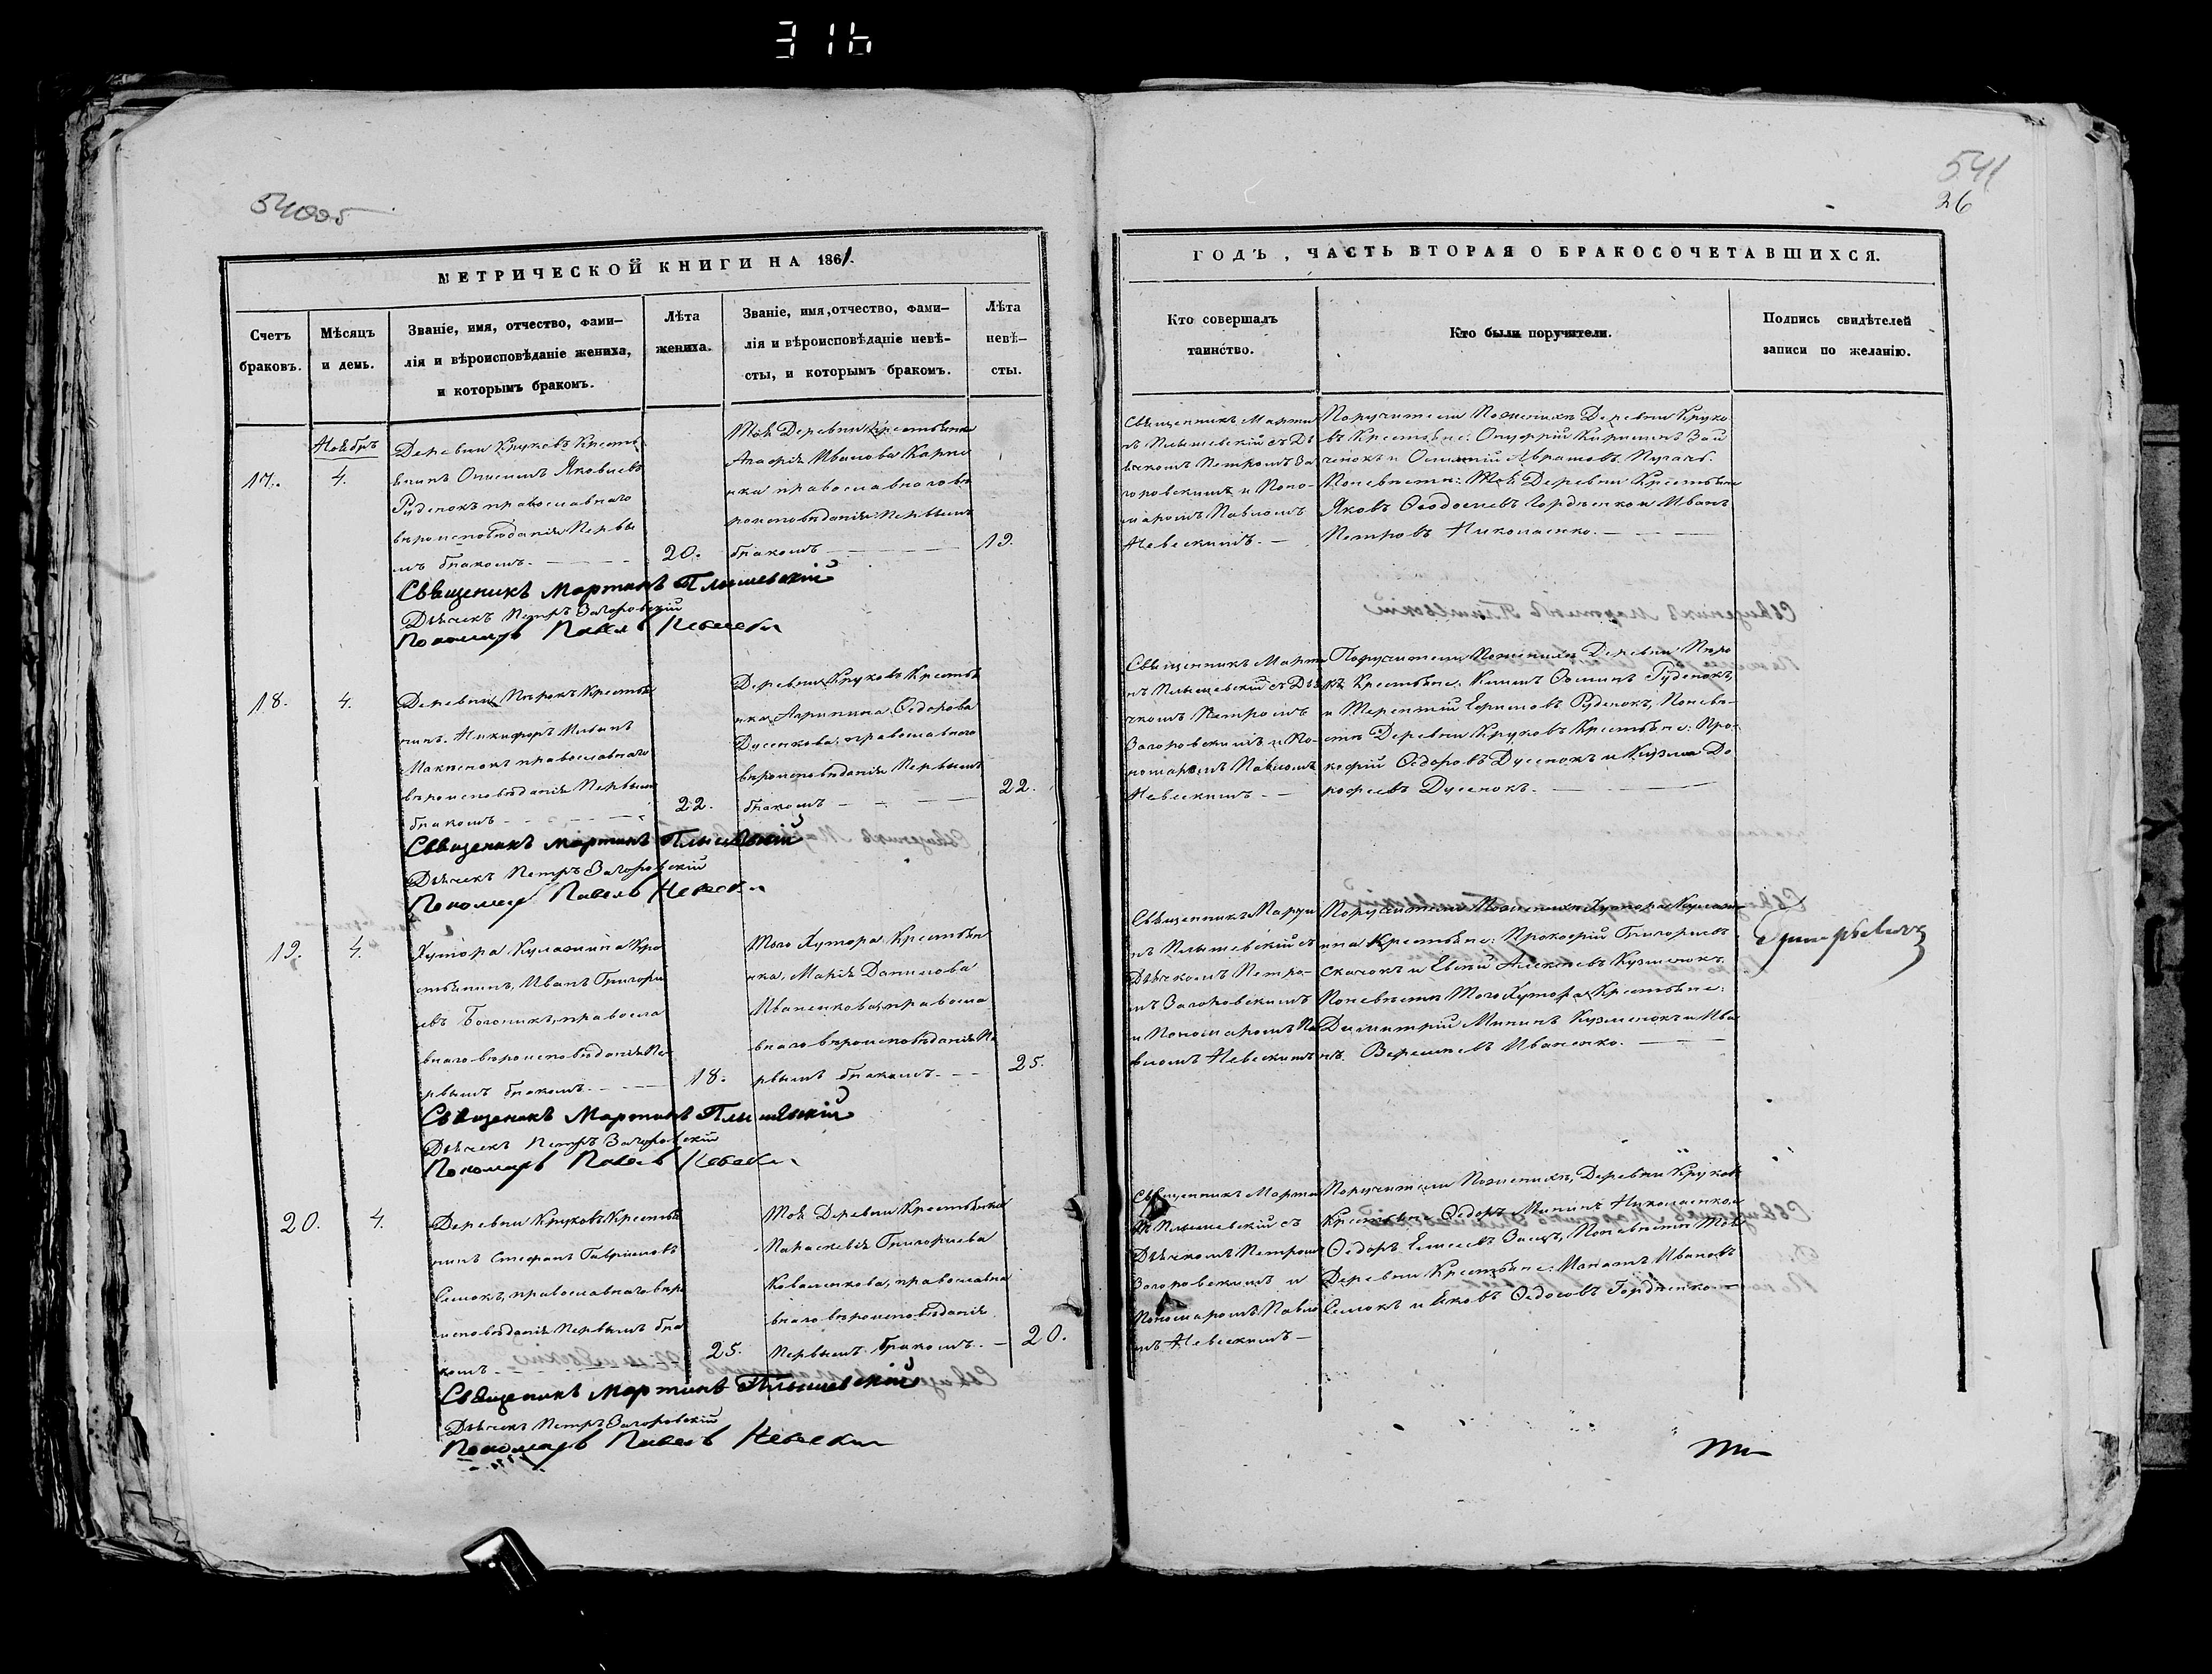 316
541
26
МЕТРИЧЕСКОЙ КНИГИ НА 1861.
ГОДЪ, ЧАСТЬ ВТОРАЯ О БРАКОСОЧЕТАВШИХСЯ.
Счетъ
браковъ.
Мѣсяцъ
и день.
Званіе, имя, отчество, фами-
лія и вѣроисповѣданіе жениха,
и которымъ бракомъ.
Лѣта
жениха.
Званіе, имя, отчество, фами-
лія и вѣроисповѣданіе невѣ-
сты, и которымъ бракомъ.
Лѣта
невѣ-
сты.
Кто совершалъ
таинство.
Кто были поручители.
Подпись свидѣтелей
записи по желанію.
Ноябрь
17.
4.
Деревни Круковъ Кресть
янинъ Онисимъ Яковлевъ
Руденокъ православнаго
вѣроисповѣданія Первы
мъ бракомъ.
20.
Той Деревни Крестьянка
Иванова
православнаго вѣ
роисповѣданія Первымъ
бракомъ
19.
Священникъ Марти
нъ Плышевскій съ Дь
ячкомъ Петромъ За
горовскимъ и Поно-
маремъ Павломъ
Невескимъ.
Поручители По женихѣ Деревни Круко
въ Крестьяне: Онуфрій
и Аврамовъ
По невѣстѣ: Той Деревни Крестьяне
Яковъ Ѳеодосіевъ Гордѣенко и Иванъ
Петровъ Николаенко.
Священикъ Мартинъ Плышевскій
Дьячекъ Петръ Загоровскій
Пономарь Павелъ Невески
18.
4.
Деревни Кресть
нинъ Никифоръ Ивановъ
православнаго
вѣроисповѣданія Первымъ
бракомъ
22.
Деревни Круковъ Крестья
нка Агрипина Ѳедорова
Дусенкова, православнаго
вѣроисповѣданія Первымъ
бракомъ
22.
Священникъ Марти
нъ Плышевскій съ Дья
чкомъ Петромъ
Загоровскимъ и По-
номаремъ Павломъ
Невескимъ
Поручители По женихѣ Деревни
Крестьяне: Климъ Ѳоминъ Руденокъ,
и Терентій Руденокъ, По невѣ-
стѣ Деревни Круковъ Крестьяне: Про-
кофій Ѳедоровъ Дусенокъ и Кузьма До
рофеевъ Дусенокъ.
Священикъ Мартинъ Плышевскій
Дьячекъ Петръ Загоровскій
Пономарь Павелъ Невески
19.
4.
Хутора Кулажина Кре
стьянинъ, Иванъ Григорі
евъ православ
внаго вѣроисповѣданія Пе
рвымъ бракомъ.
18.
Того Хутора Крестьян
ка, Марія Данилова
Иваненкова, правосла
внаго вѣроисповѣданія Пе
рвымъ бракомъ.
25.
Священникъ Марти
нъ Плышевскій съ
Дьячкомъ Петро-
мъ Загоровскимъ
и Пономаремъ Па
вломъ Невескимъ
Поручители По женихѣ Хутора Кулажи
на Крестьяне: Прокофій Григорьевъ
и Евсей Алексѣевъ Кузменокъ
По невѣстѣ Того Хутора Крестьяне:
Димитрій Мининъ Кузменокъ и Ива
нъ Иваненко.
Священикъ Мартинъ Плышевскій
Дьячекъ Петръ Загоровскій
Пономарь Павелъ Невески
20.
4.
Деревни Круковъ Крестья
нинъ Стефанъ Гавриловъ
православнаго вѣро
исповѣданія Первымъ бра
комъ
25.
Той Деревни Крестьянка
Параскевія Григорьева
Коваленкова, православна
внаго вѣроисповѣданія
Первымъ бракомъ.
20.
Священникъ Марти
нъ Плышевскій съ
Дьячкомъ Петромъ
Загоровскимъ и
Пономаремъ Павло
мъ Невескимъ
Поручители По женихѣ, Деревни Круковъ
Крестьяне: Ѳедоръ Мининъ Николаенко и
Ѳедоръ Елисеевъ Заецъ, По невѣстѣ Той
Деревни Крестьяне: Ивановъ
и Яковъ Ѳедосовъ Гордѣенко
Священикъ Мартинъ Плышевскій
Дьячекъ Петръ Загоровскій
Пономарь Павелъ Невески